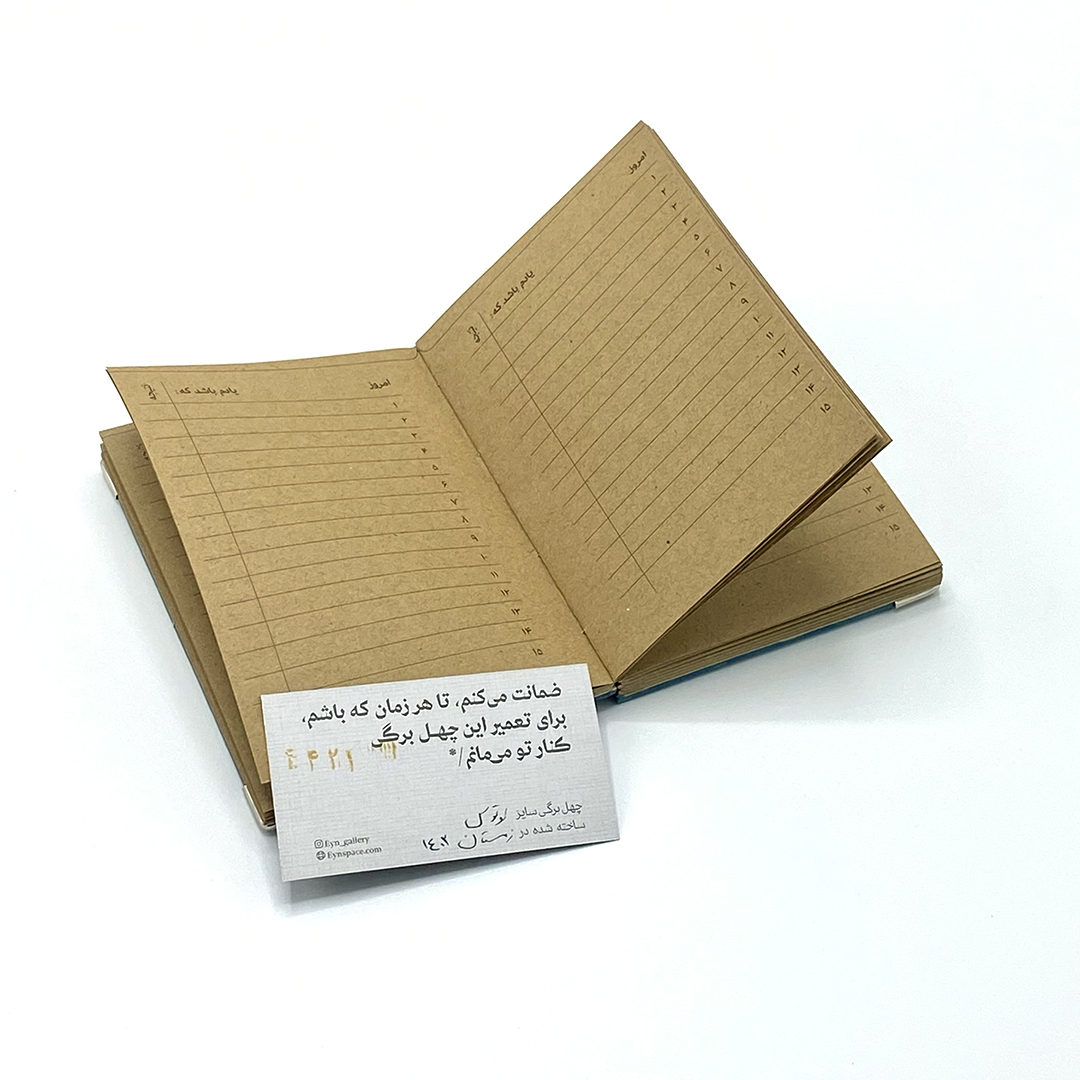 امروز
یادم باشد که:
۱
۲
۳
۴
۵
۶
۷
۸
۹
۱۰
۱۱
۱۲
۱۳
۱۴
۱۵
امروز
یادم باشد که:
۱
۲
۳
۴
۵
۶
۷
۸
۹
۱۰
۱۱
۱۲
۱۳
۱۴
۱۵
۱۳
۱۴
۱۵
ضمانت می‌کنم، تا هر زمان که باشم،
برای تعمیر این چهل برگ
کنار تو می‌مانم/*
چهل برگی سایز
ساخته شده در زمستان ۱۴۰۲
Eyn_gallery
Eynspace.com